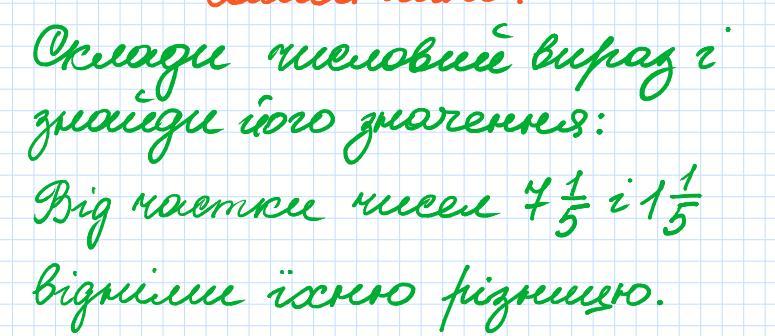 Склади числовий вираз і
знайди його значення:
Від частки чисел 7 1/5 і 1 1/5
відніми їхню різницю.